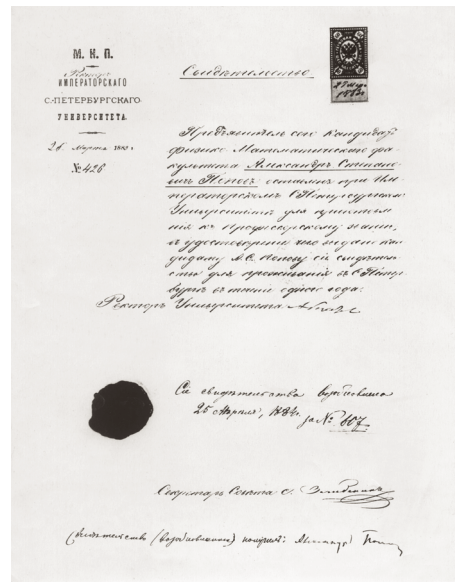 М. Н. П.
Ректор
ИМПЕРАТОРСКАГО
С.-ПЕТЕРБУРГСКАГО
УНИВЕРСИТЕТА.
26 Марта 188
№ 426
Свидѣтельство
Предъявитель сего кандидатъ
физико Математическаго фа-
культета Александръ Степано-
вичъ Поповъ оставленъ при Им-
ператорскомъ С Петербургскомъ
Университетѣ для приготовле-
нія къ профессорскому званію,
въ удостовѣреніе чего выдано кан-
дидату А. С. Попову сіе свидѣтель-
ство для проживанія въ С Петер-
бургѣ въ теченіе одного года.
Ректоръ Университета
свидѣтельства
25 Апрѣля, за № 607
Секретарь Совѣта